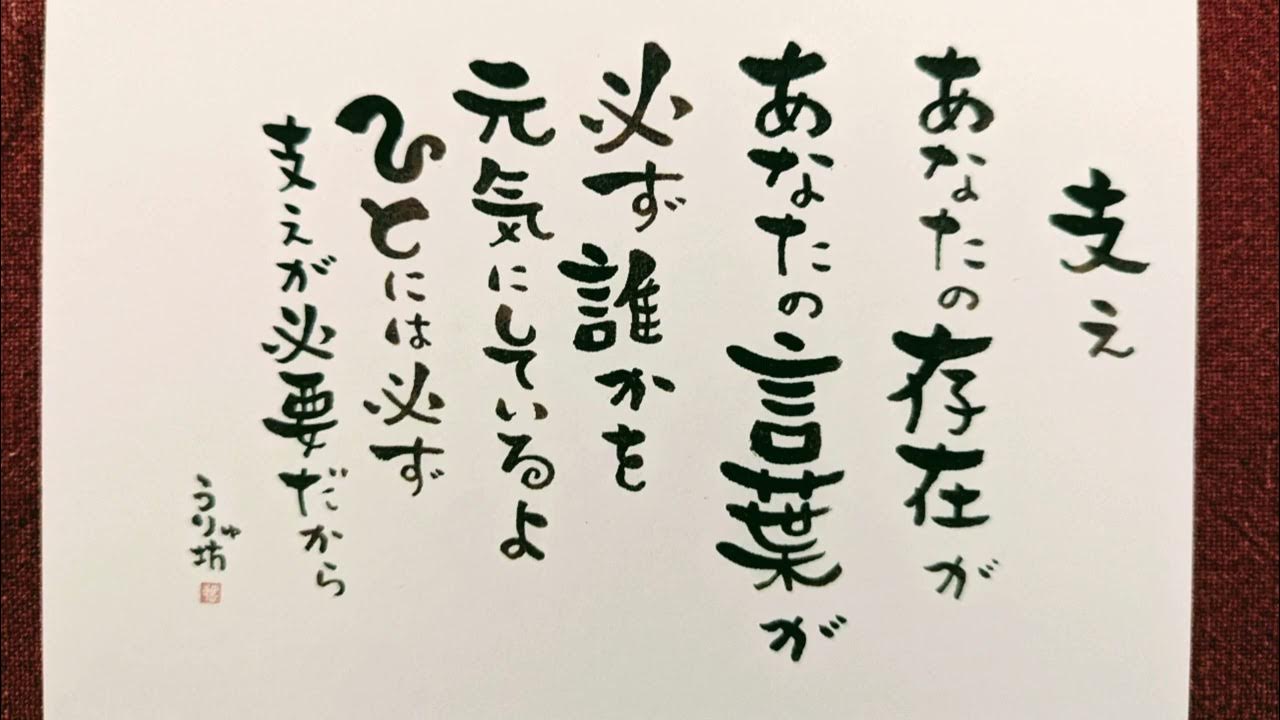 支え
あなたの存在が
あなたの言葉が
必ず誰かを
元気にしているよ
ひとには必ず
支えが必要だから
うりゅ坊